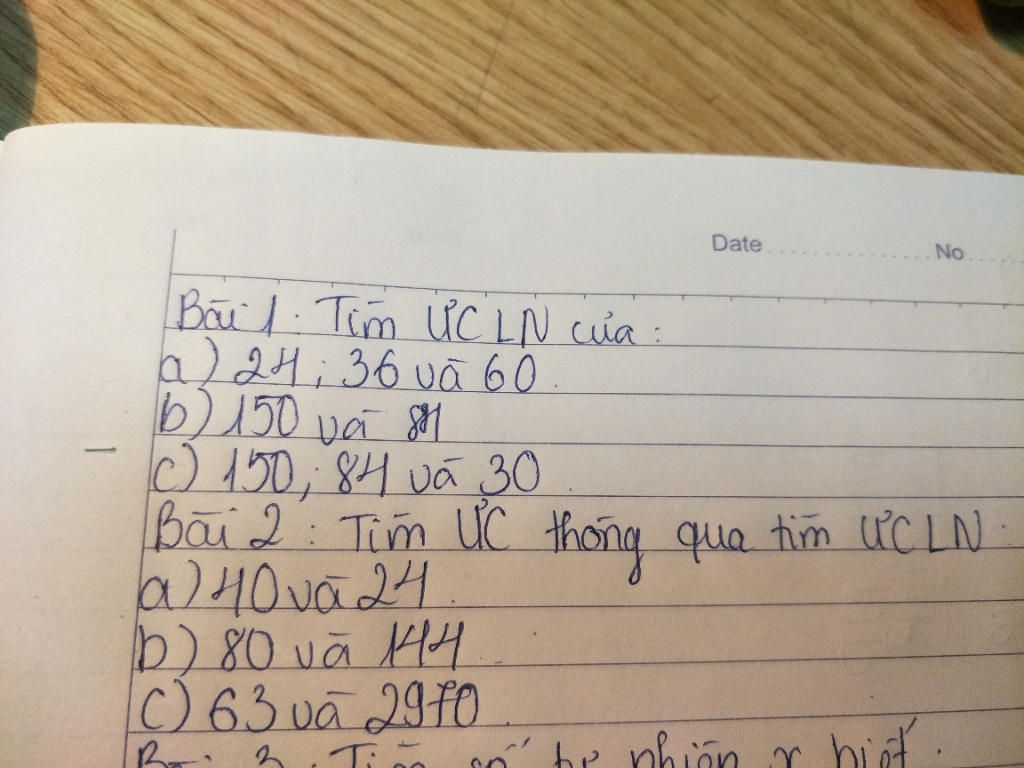 Date No
Bài 1 : Tìm ƯCLN của :
a) 24 ; 36 và 60 .
b) 150 và 84
c) 150 ; 84 và 30 .
Bài 2 : Tìm ƯC thông qua tìm ƯCLN .
a) 40 và 24 .
b) 80 và 144 .
c) 63 và 2970 .
Bài 3 : Tìm số tự nhiên x biết .